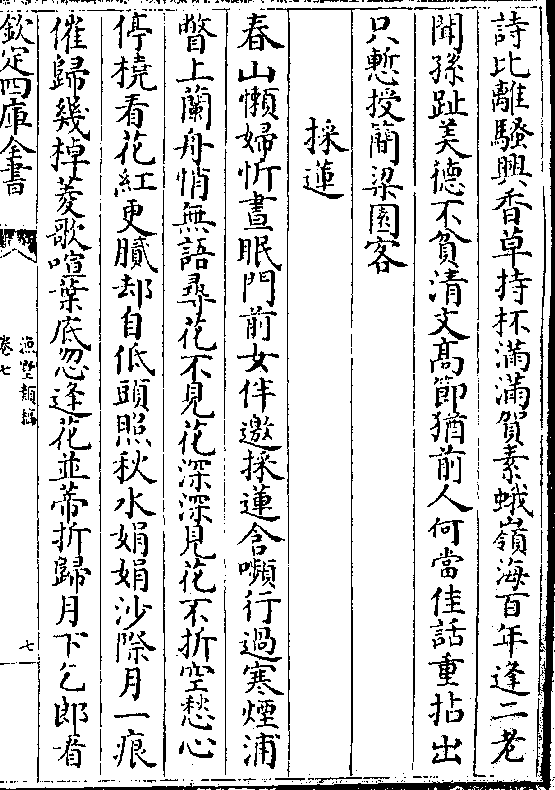 詩比離騷興香草持杯滿滿賀素娥嶺海百年逢二老
聞孫趾美德不貧清文高節猶前人何當佳話重拈出
只慙授簡梁園客
採蓮
春山懶婦忻晝眠門前女伴邀採蓮含嚬行過寒煙浦
瞥上蘭舟悄無語尋花不見花深深見花不折空愁心
停橈看花紅更膩却自低頭照秋水娟娟沙際月一痕
催歸幾棹菱歌喧葉底忽逢花並蒂折歸月下乞郎看
欽定四庫全書
漁墅類稿
卷七
七